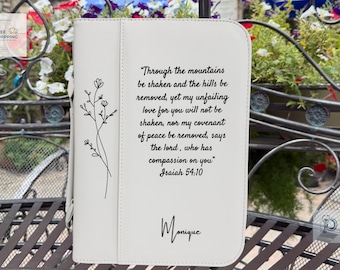 "Through the mountains
be shaken and the hills be
removed, yet my unfailing
love for you will not be
shaken, nor my covenant
of peace be removed, says
the lord , who has
compassion on you"
Isaiah 54:10
Monique